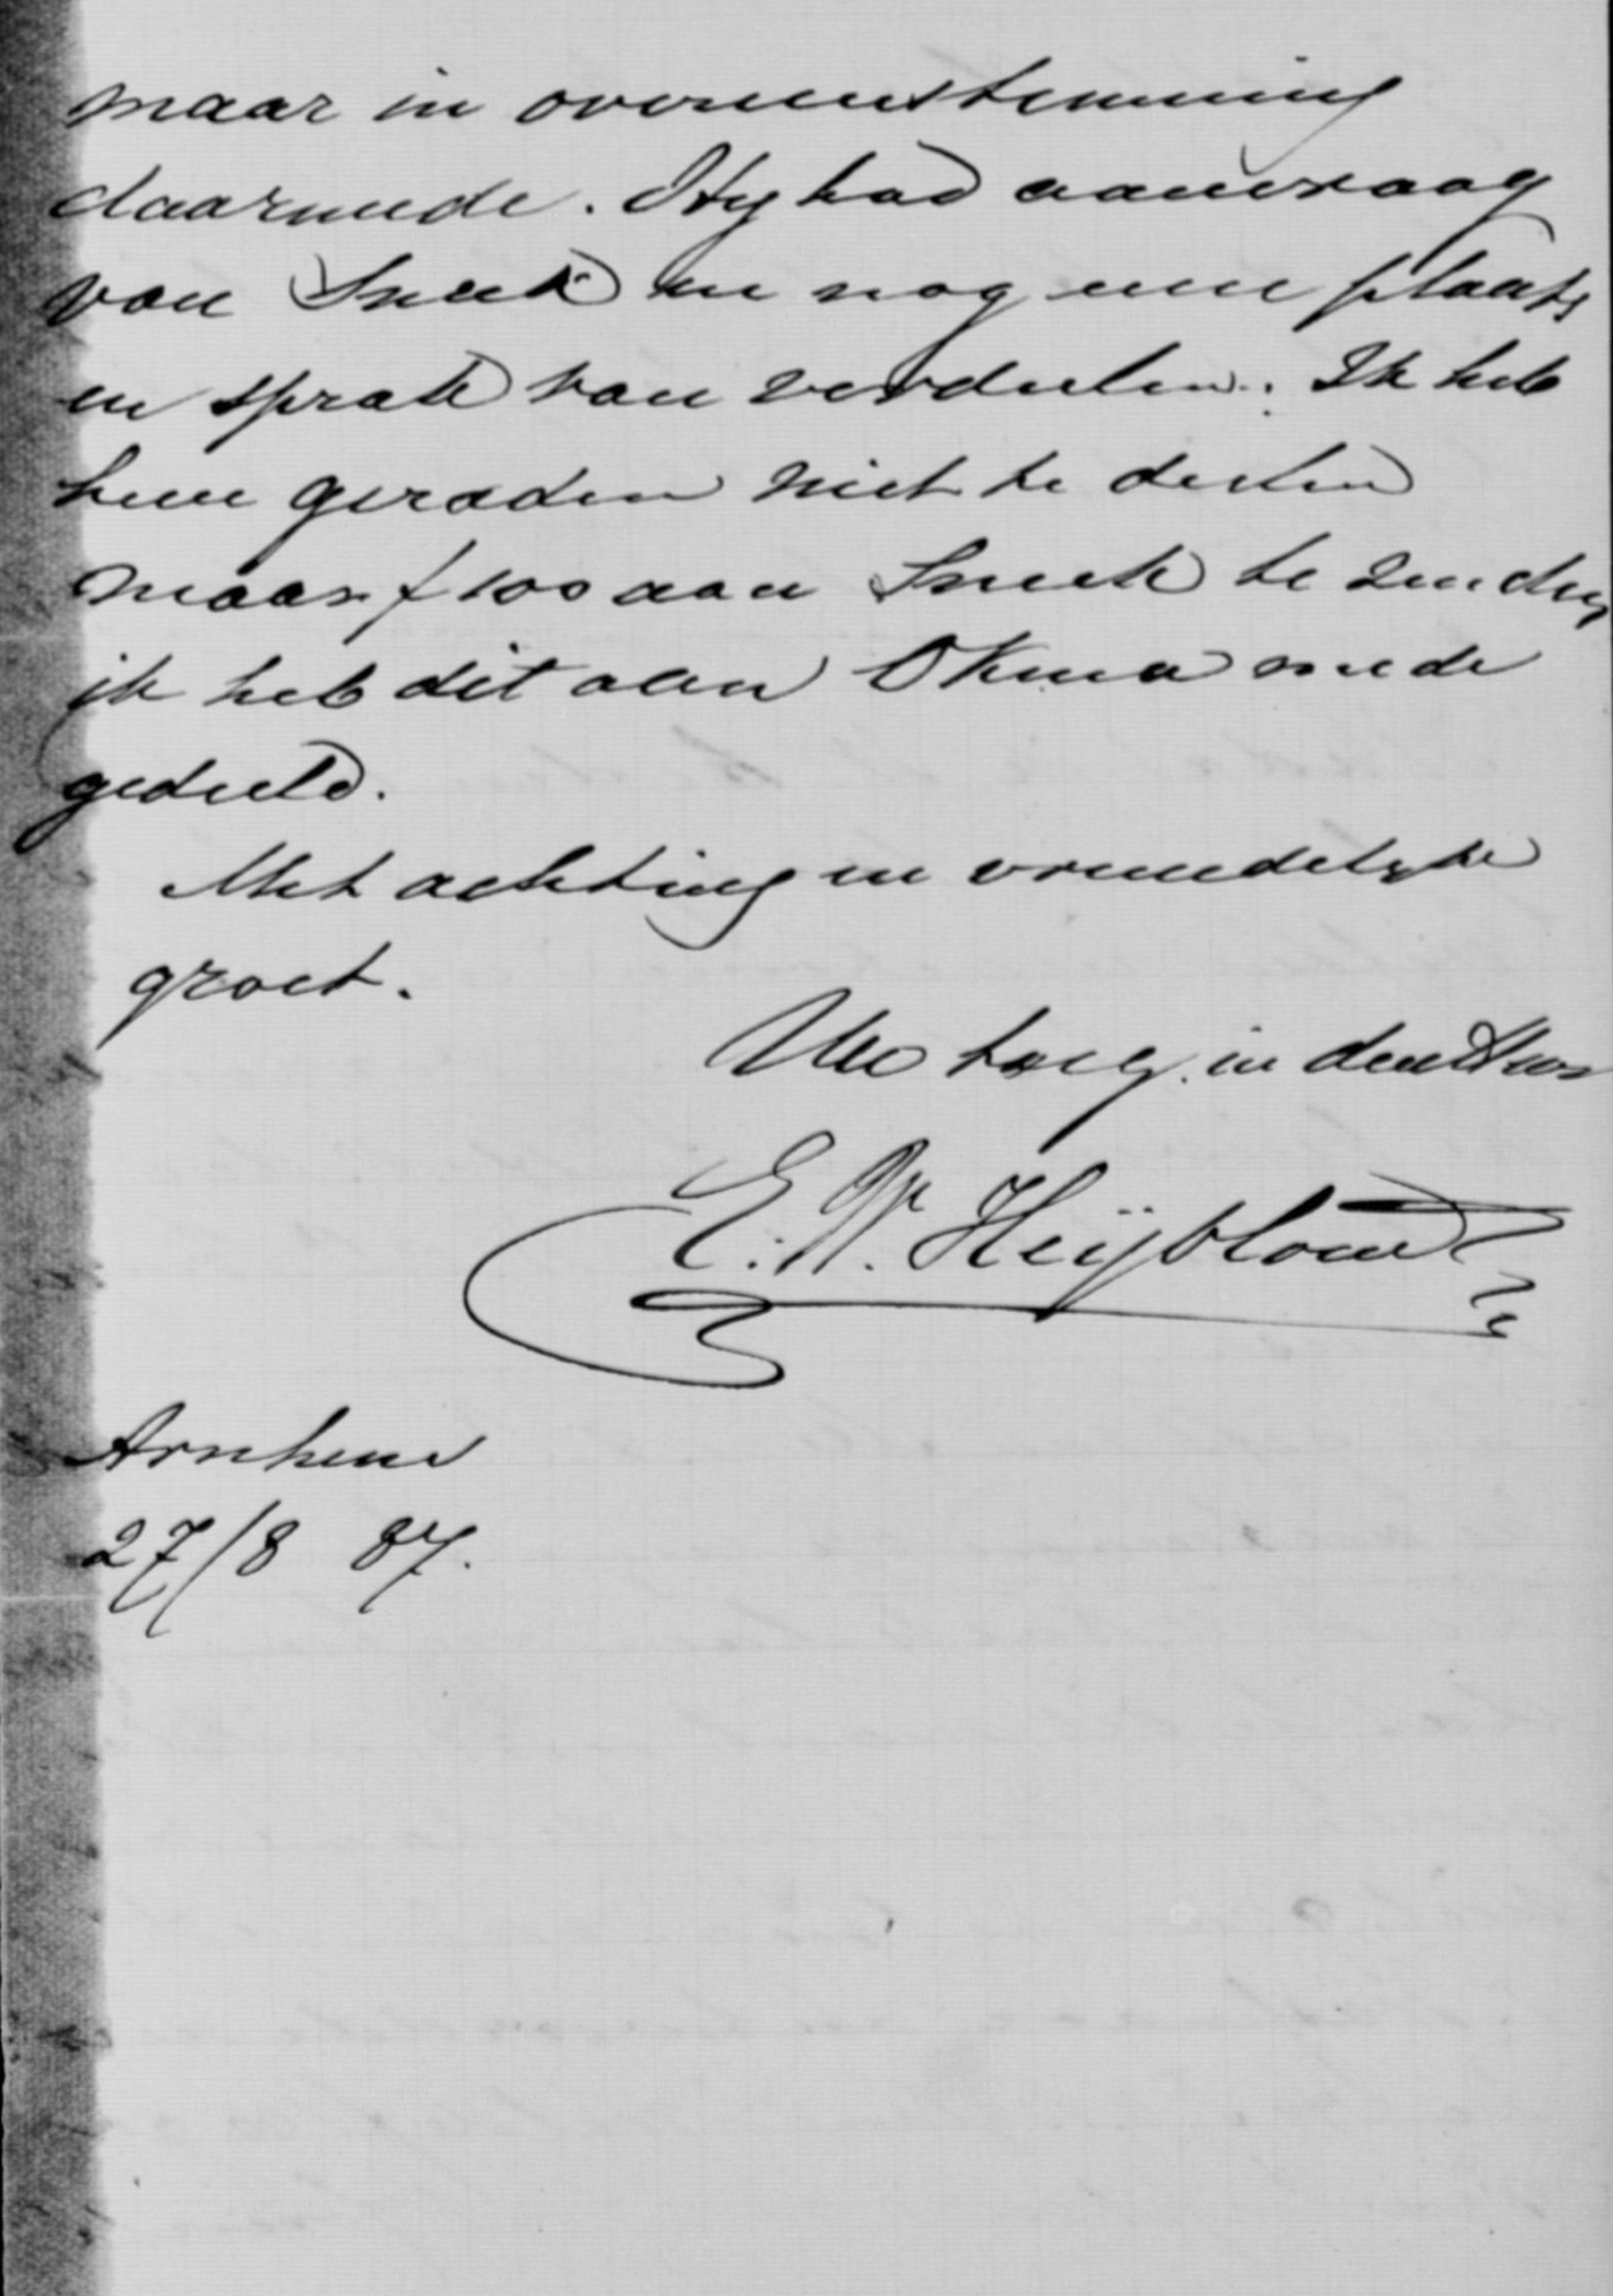 maar in overeenstemming
daarmede. Hy had aanvraag
van Sneek en nog eene plaats
en sprak van verdeelen. Ik heb
hem geraden niet te deelen
maar f 100 aan Sneek te zenden
ik heb dit aan Okma mede
gedeeld.
Met achting en vriendelyke
groet.
Uw toeg. in den Heer
E. W. Heijblom
Arnhem
27/8 87.